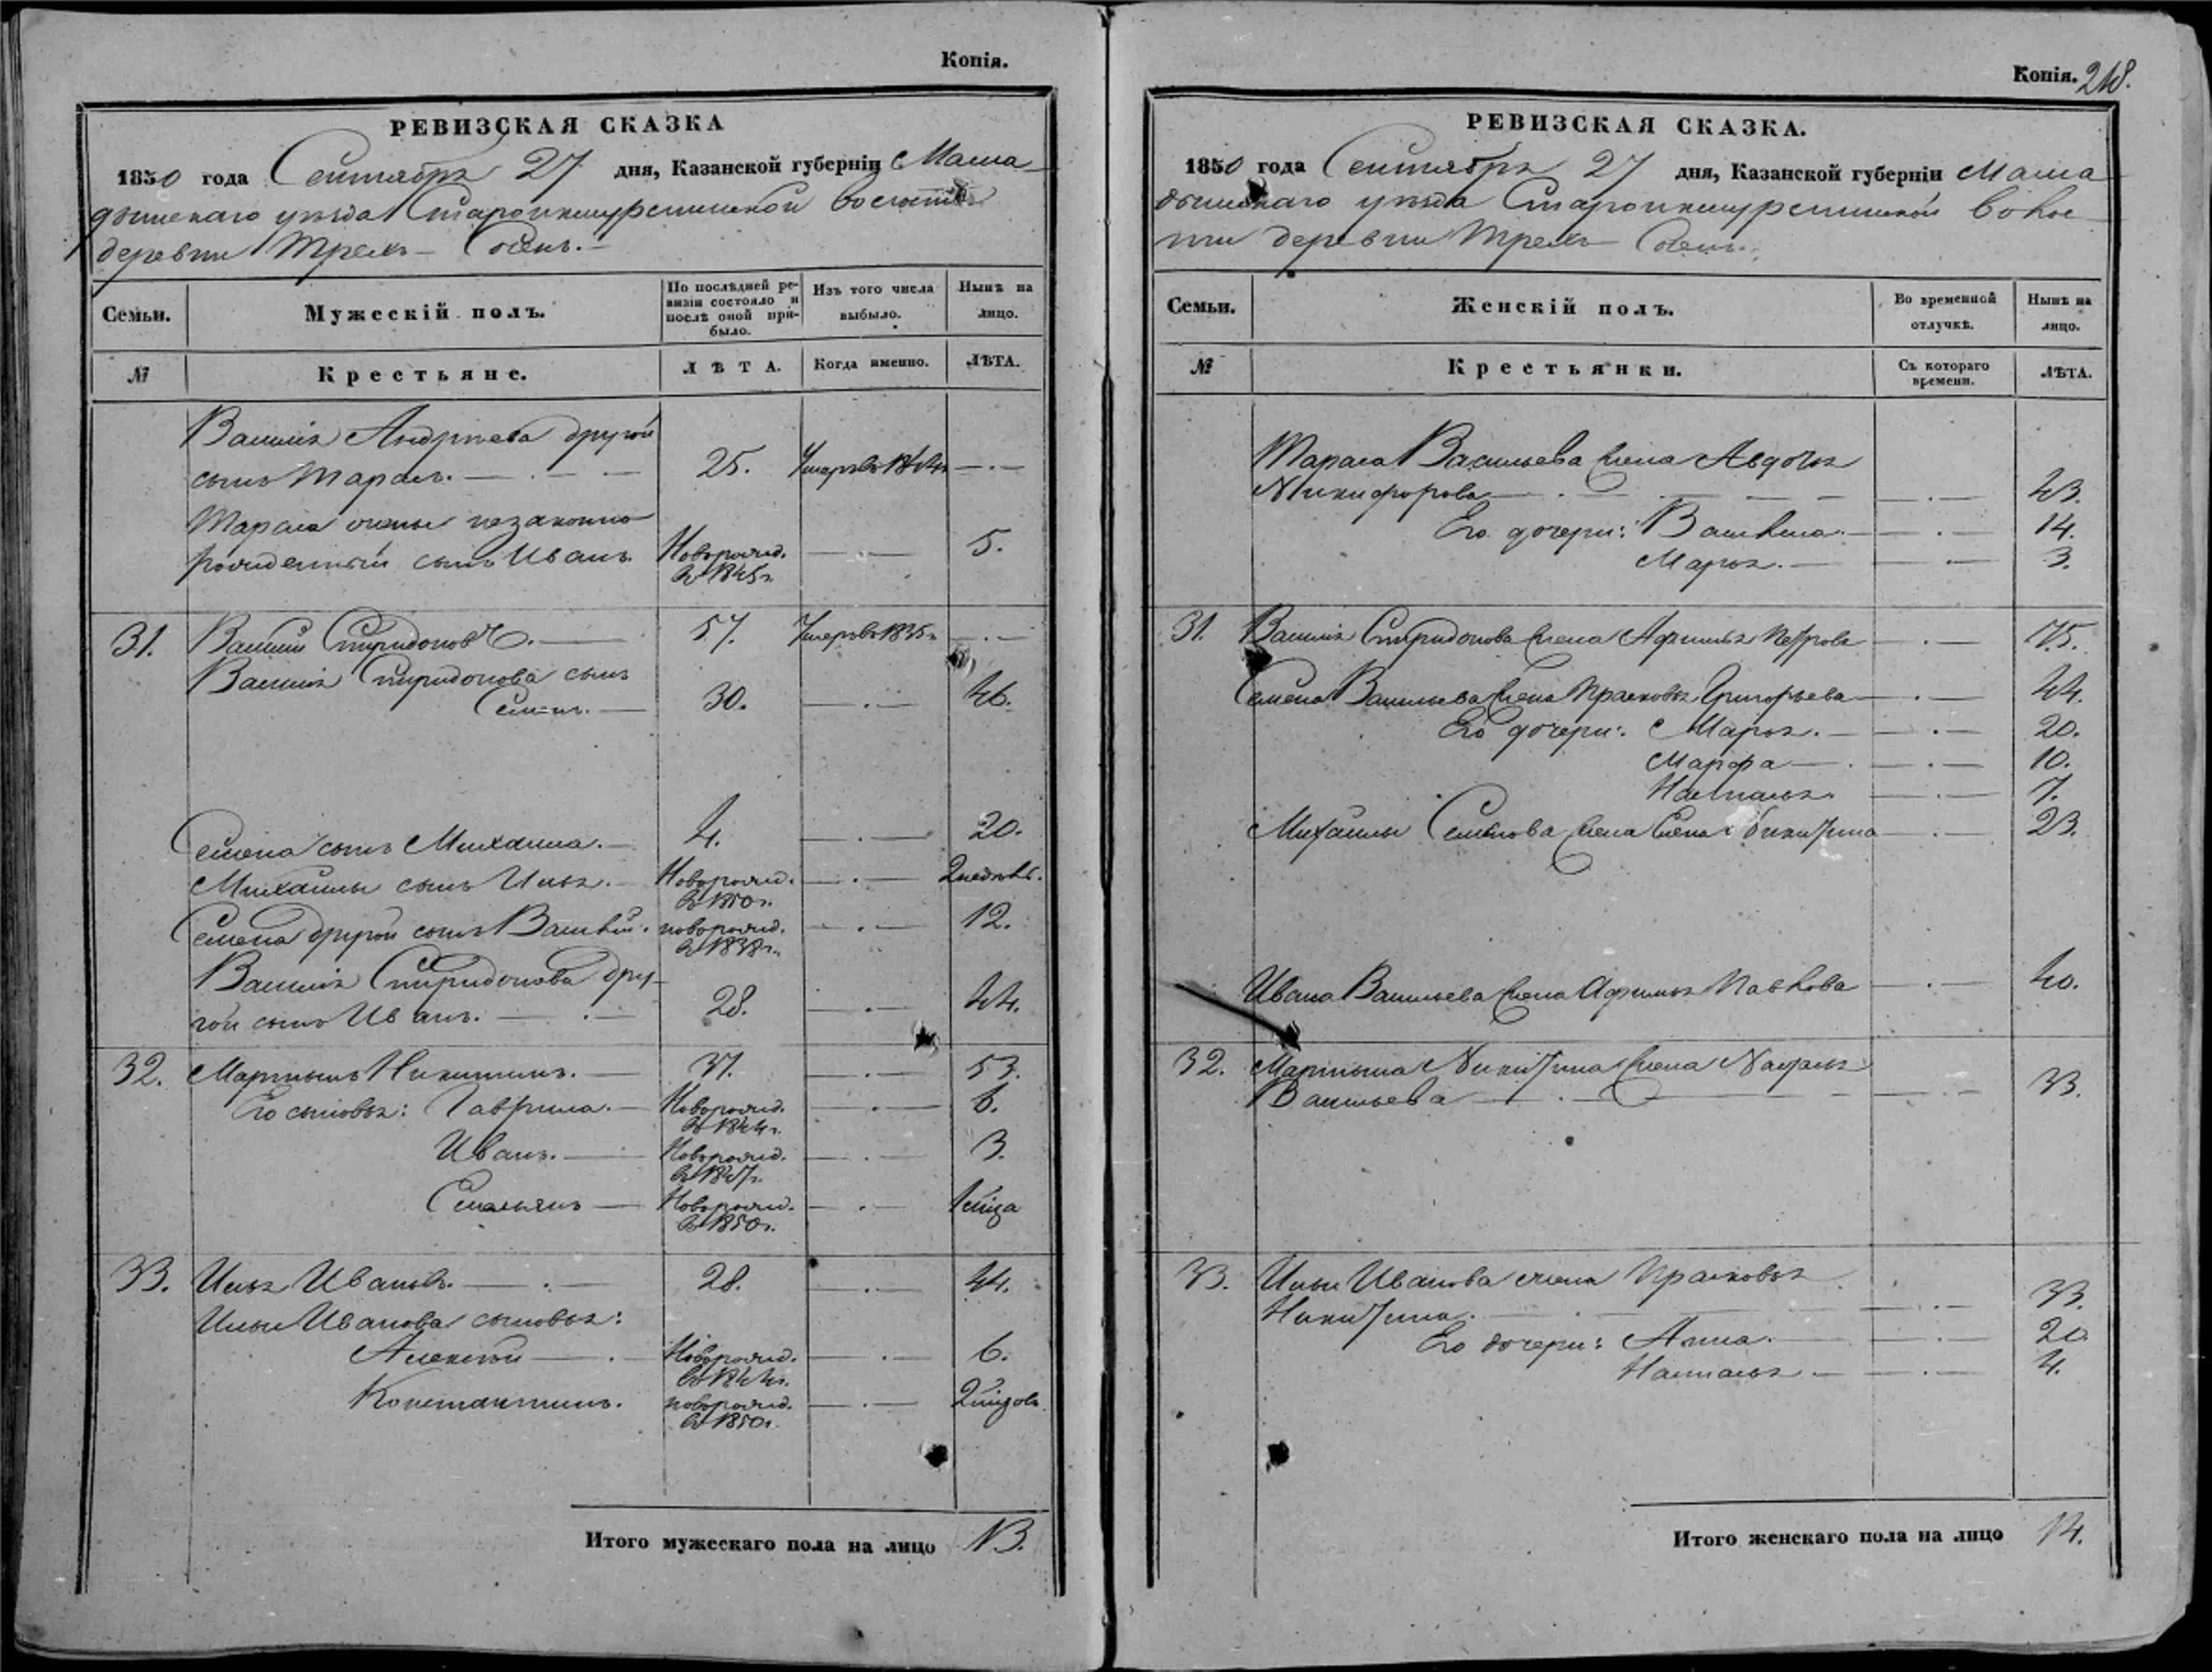 Копія.
РЕВИЗСКАЯ СКАЗКА
1850 года Сентября 27 дня, Казанской губерніи Мама
дышскаго уѣзда Старопкшурскинской волости
деревни Трехъ-Соснъ.
Семьи.
Мужескій полъ.
По послѣдней ре-
визіи состояло и
послѣ оной при-
было.
Изъ того числа
выбыло.
Нынѣ на
лицо.
№
Крестьяне.
ЛѢТА.
Когда именно.
ЛѢТА.
Василія Андреева другой
сынъ Тарасъ. 25. Умеръ въ 1844 —
Тараса жены незаконно
рожденный сынъ Иванъ. Новорожд. — 5.
въ 1845г.
31. Василій Спиридоновъ. 57. Умеръ въ 1835г. —
Василія Спиридонова сынъ
Семенъ. 30. — 46.
Семена сынъ Михаила. 4. — 20.
Михайлы сынъ Илья. Новорожд. — 2 недѣль.
въ 1850г.
Семена другой сынъ Василій. новорожд. — 12.
въ 1838г.
Василія Спиридонова дру-
гой сынъ Иванъ. 28. — 44.
32. Мартынъ Никитинъ. 37. — 53.
Его сыновья: Гаврила. Новорожд. — 6.
въ 1844г.
Иванъ. Новорожд. — 3.
въ 1847г.
Емельянъ Новорожд. — 1 мѣца
въ 1850г.
33. Илья Ивановъ. 28. — 44.
Ильи Иванова сыновья:
Алексѣй Новорожд. — 6.
въ 1844г.
Константинъ. новорожд. — 2 мѣцовъ
въ 1850г.
Итого мужескаго пола на лицо 13.
Копія. 248.
РЕВИЗСКАЯ СКАЗКА.
1850 года Сентября 27 дня, Казанской губерніи Мама
дышскаго уѣзда Старопкшурскинской волос
ти деревни Трехъ-Соснъ.
Семьи.
Женскій полъ.
Во временной
отлучкѣ.
Нынѣ на
лицо.
№
Крестьянки.
Съ котораго
времени.
ЛѢТА.
Тараса Васильева жена Авдотья
Никифорова — 43.
Его дочери: Василиса. — 14.
Марья. — 3.
31. Василія Спиридонова жена Афимья Петрова — 75.
Семена Васильева жена Прасковья Григорьева — 44.
Его дочери: Марья. — 20.
Марфа — 10.
Наталья. — 7.
Михайлы Семенова жена Елена Никитина — 23.
Ивана Васильева жена Афимья Павлова — 40.
32. Мартына Никитина жена Наталья
Васильева — 33.
33. Ильи Иванова жена Прасковья
Никитина. — 33.
Его дочери: Анна. — 20.
Наталья — 4.
Итого женскаго пола на лицо 14.